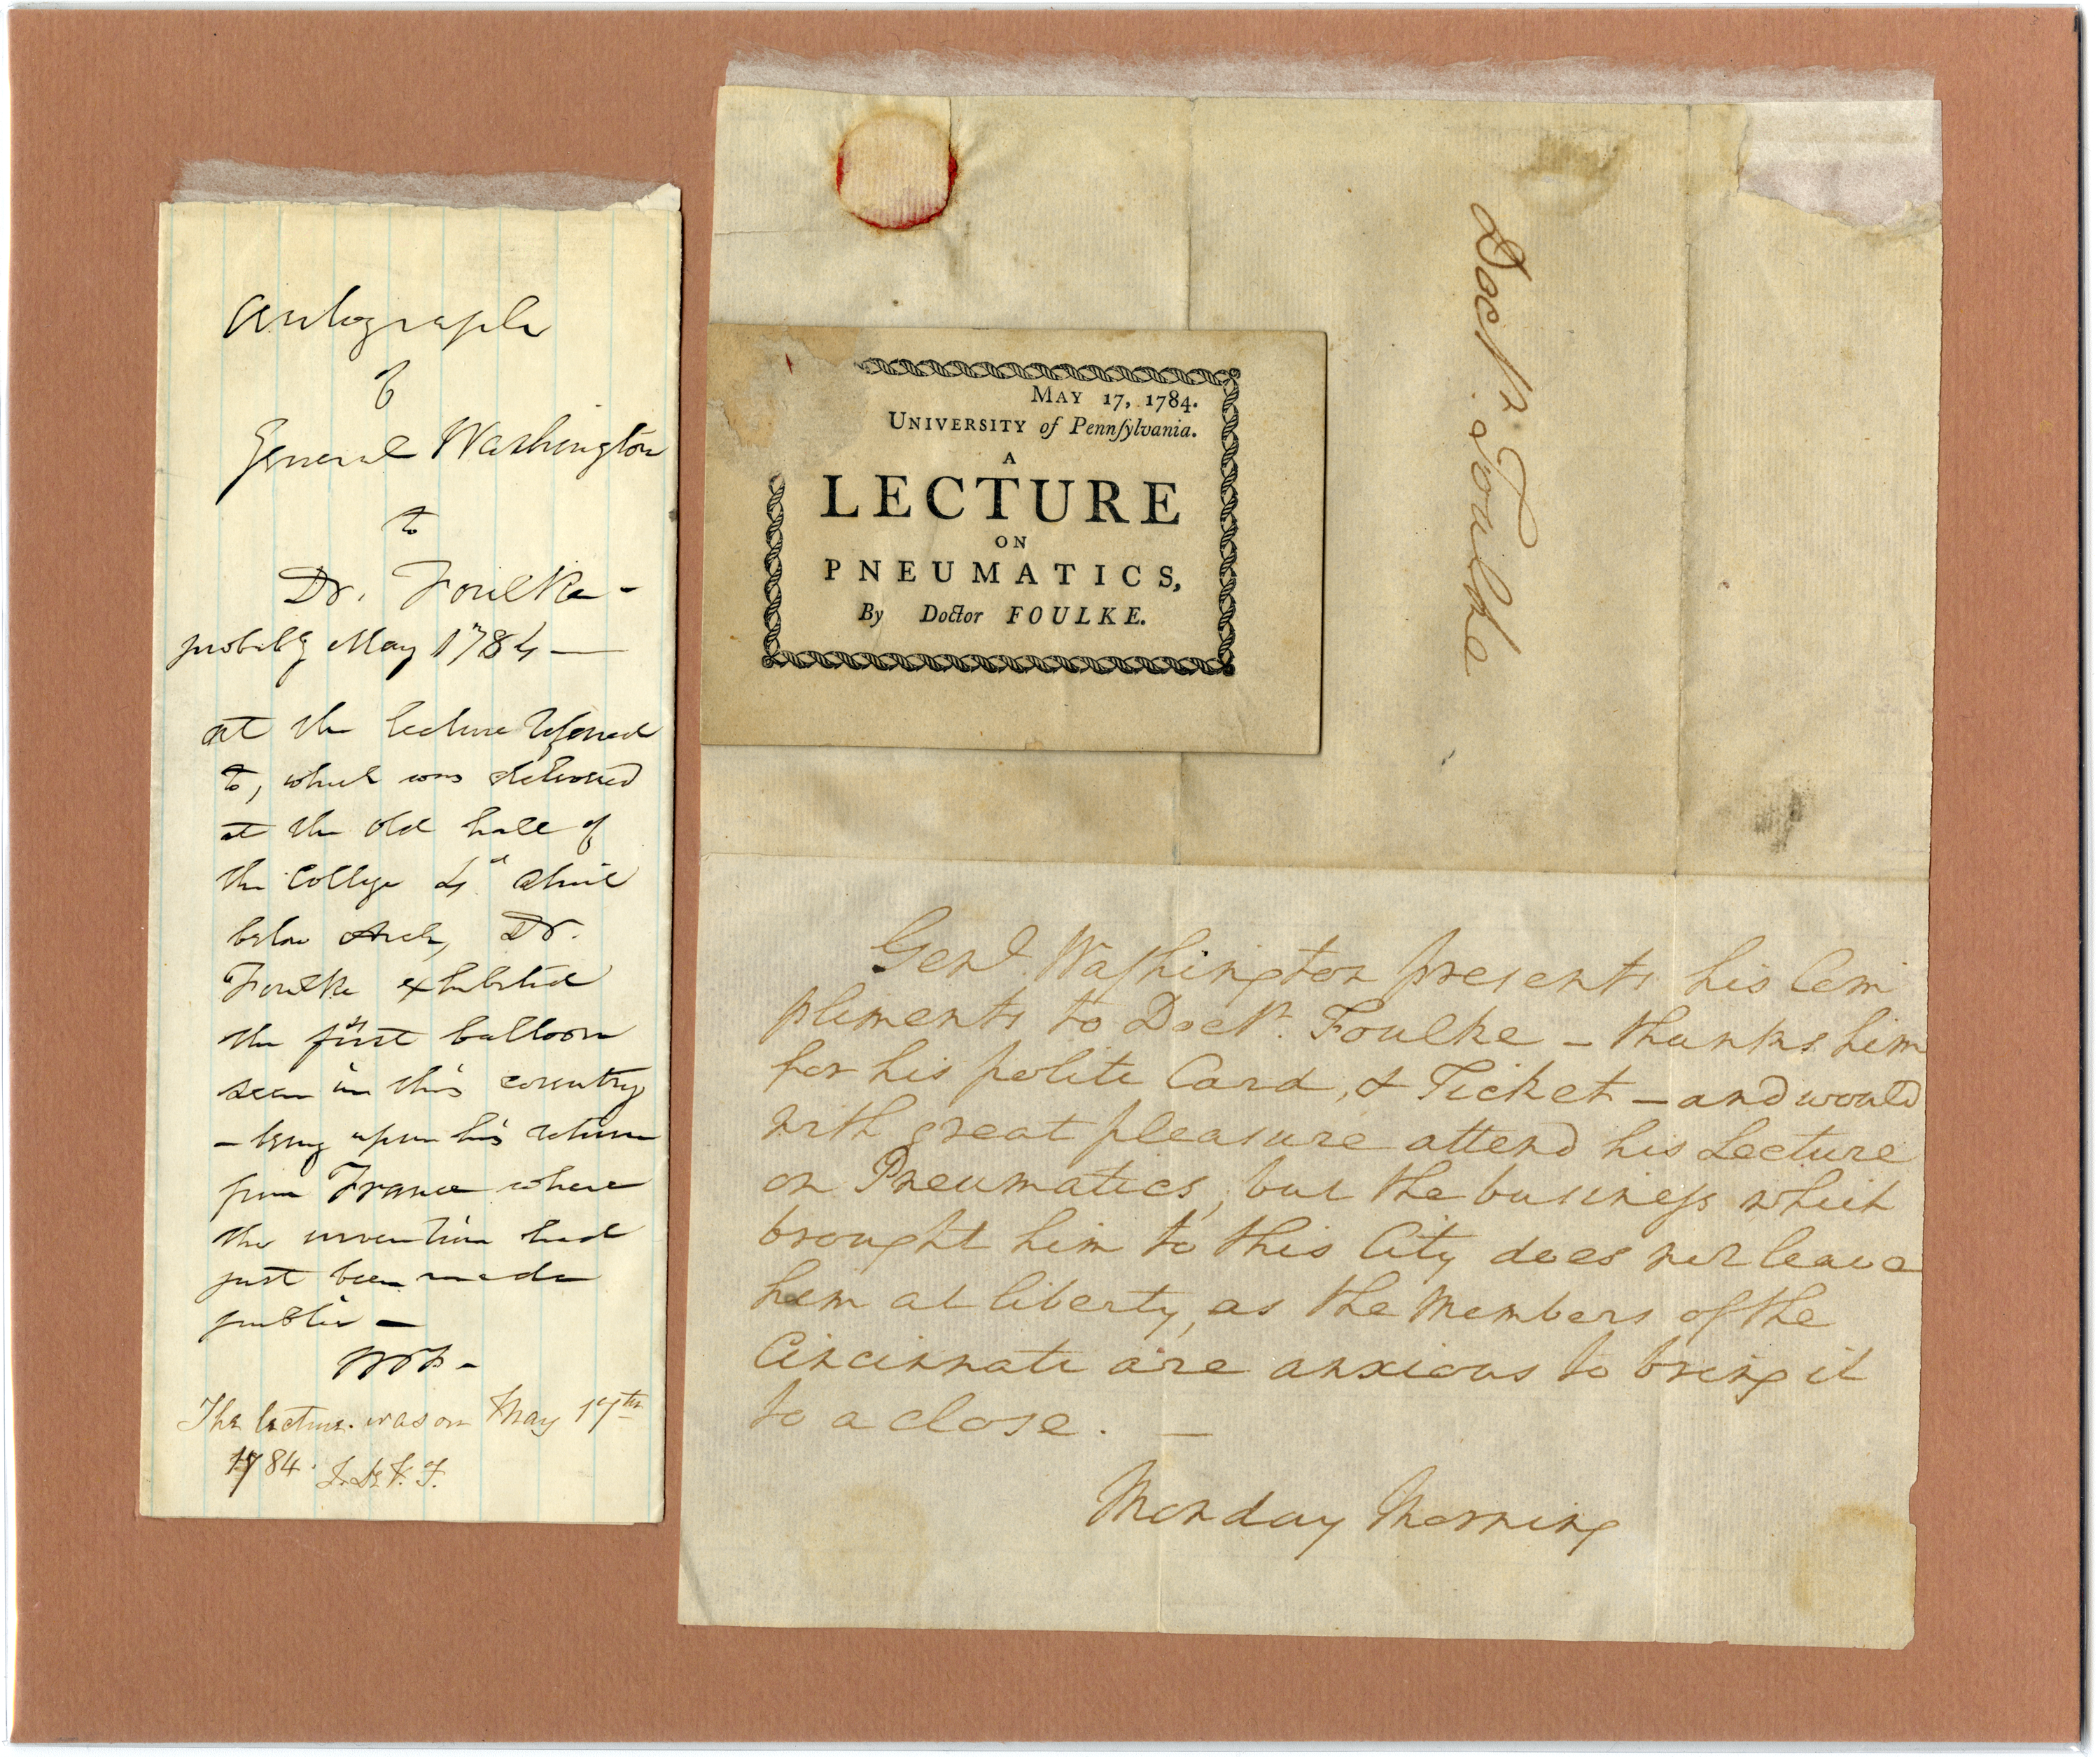 Autograph
of
General Washington
to
Dr. Foulke -
probably May 1784 —
at the lecture referred
to, which was delivered
at the old hall of
the College 4th Street
below Arch, Dr.
Foulke exhibited
the first balloon
seen in this country
- being upon his return
from France where
the invention had
just been made
public —
The lecture was on May 17th
1784.
MAY 17, 1784.
UNIVERSITY of Pennſylvania.
A
LECTURE
ON
PNEUMATICS,
By Doctor FOULKE.
Doctr. Foulke
Genl. Waſhington presents his Com
pliments to Doctr. Foulke – thanks him
for his polite Card, & Ticket – and would
with great pleasure attend his Lecture
on Pneumatics, but the buſineſs which
brought him to this City does not leave
him at liberty, as the Members of the
Cincinnati are anxious to bring it
to a close. —
Monday Morning